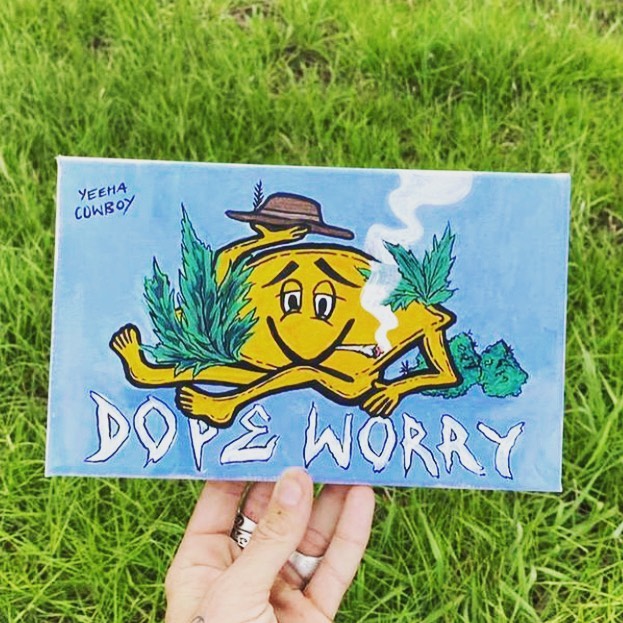 YEEHA
COWBOY
DOPE WORRY